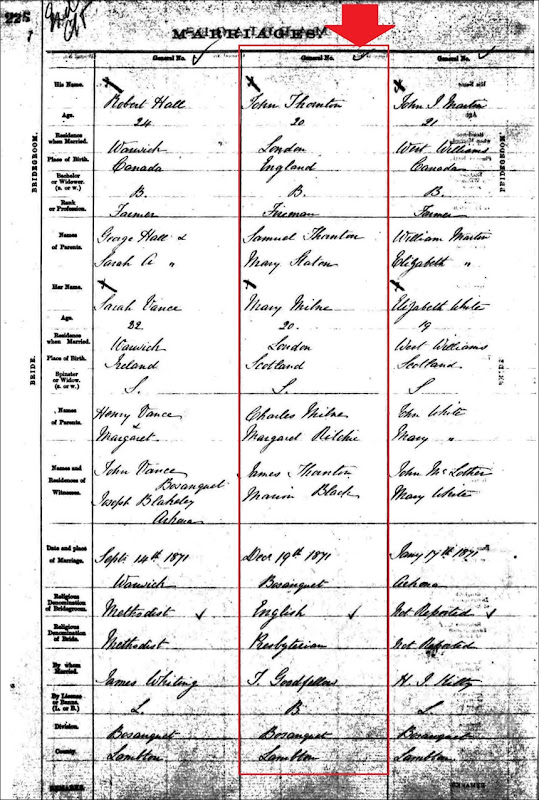 225
MARRIAGES
General No. General No. General No.
His Name. Robert Hall John Thornton John I Martin
Age. 24 20 21
Residence when Married. Warwick London West Williams
Place of Birth. Canada England Canada
Bachelor or Widower. (B. or W.) B. B. B.
Rank or Profession. Farmer Fireman Farmer
Names of Parents. George Hall & Samuel Thornton William Martin
Sarah A " Mary Staton Elizabeth "
Her Name. Sarah Vance Mary Milne Elizabeth White
Age. 22 20. 19
Residence when Married. Warwick London West Williams
Place of Birth. Ireland Scotland Scotland
Spinster or Widow. (S. or W.) S. S. S
Names of Parents. Henry Vance Charles Milne Jhn White
& Margaret Margaret Ritchie Mary "
Names and Residences of Witnesses. John Vance James Thornton John McLother
Bosanquet
Joseph Blakeley Marion Black Mary White
Arkona
Date and place of Marriage. Sept. 14th 1871 Decr 19th 1871 Jany 17th 1871
Warwick Bosanquet Arkona
Religious Denomination of Bridegroom. Methodist English Not Reported
Religious Denomination of Bride. Methodist Presbyterian Not Reported
By whom Married. James Whiting T. Goodfellow H. J.
By License or Banns. (L. or B.) L. B L
Division. Bosanquet Bosanquet Bosanquet
County. Lambton Lambton Lambton
REMARKS REMARKS
BRIDEGROOM.
BRIDE.
BRIDEGROOM